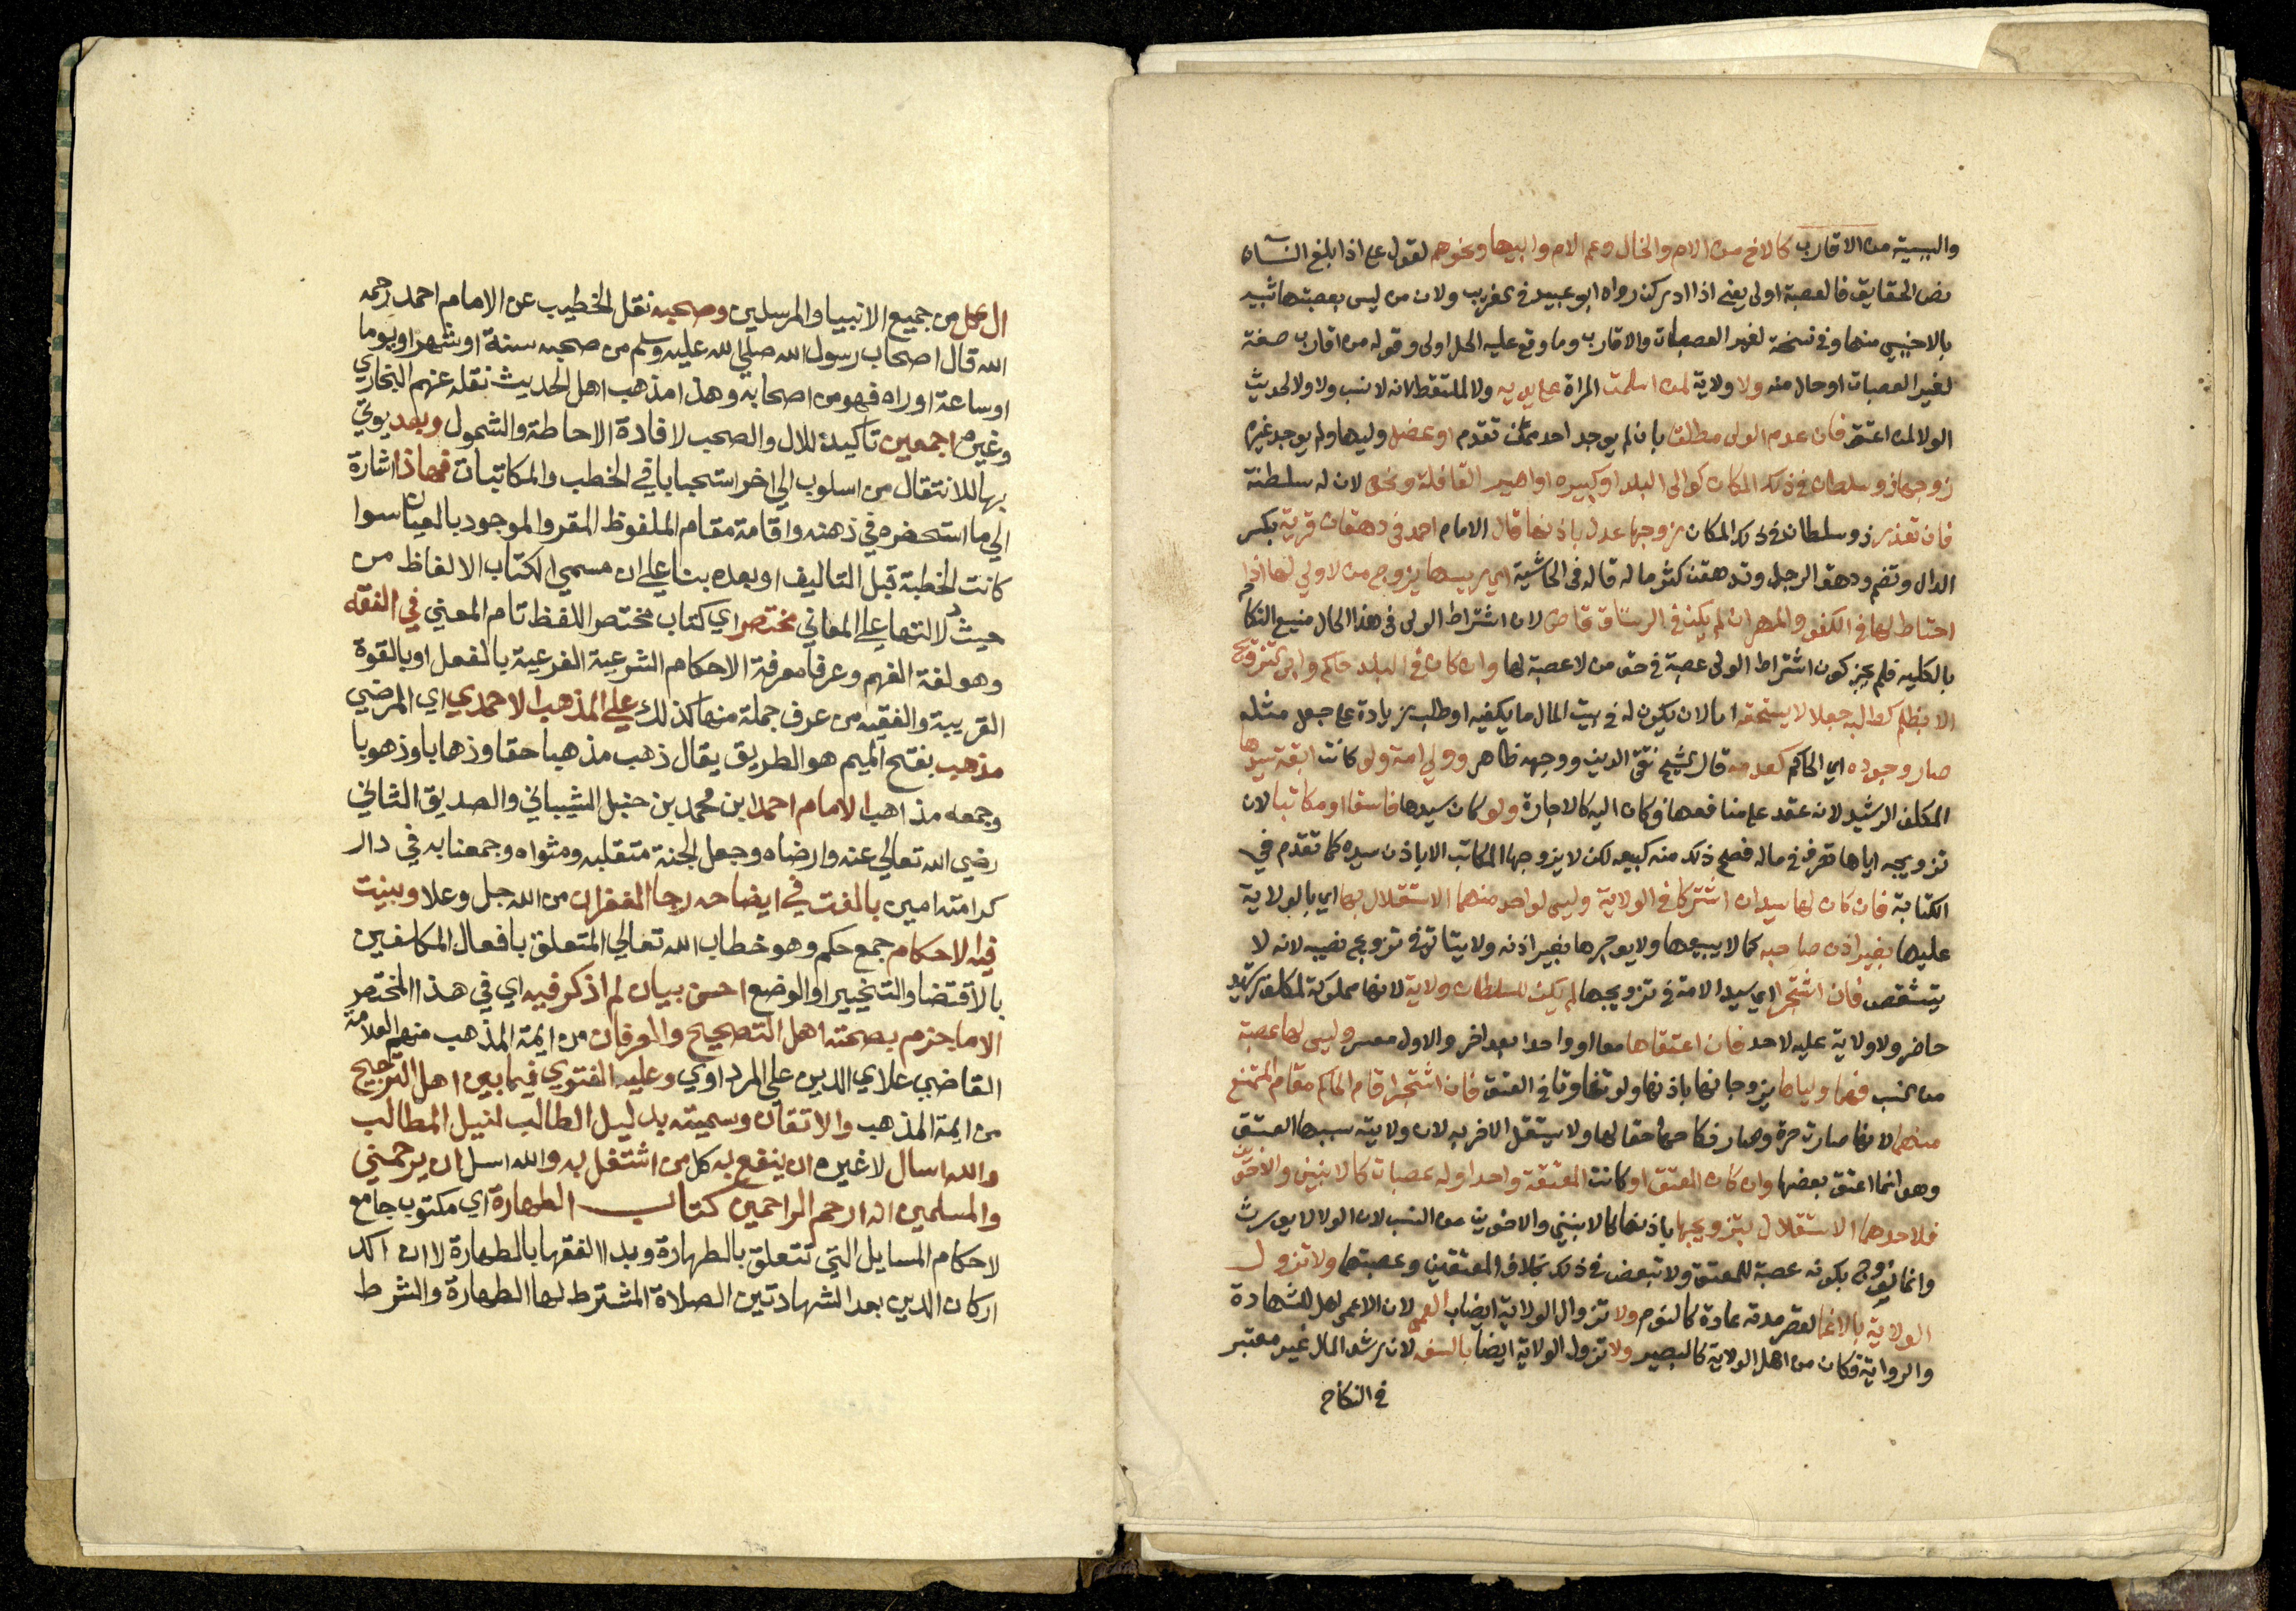 والبيية من الاقارب كالاخ من الام والخال وعم الام وابيها ونحوهم لقول علي اذا بلغ النساء
نص الحقايق فالعصبة اولى يعني اذا ادركن رواه ابو عبيد في غريب ولان من ليس بعصبتها شبيه
بالاجنبي منها وفي نسخة لغير العصبات والاقارب وما وقع عليه الحل اولى وقوله من اقارب صفة
لغير العصبات او حال منه ولا ولاية لمن اسلمت المراة على يديه ولا لملتقط لانه لا نسب ولا ولا لحديث
الولا لمن اعتق فان عدم الولي مطلقا بان لم يوجد احد ممن تقدم او عضل وليها ولم يوجد غيره
زوجها ذو سلطان في ذلك المكان كوالي البلد او كبيره او امير القافلة ونحوه لان له سلطنة
فان تعذر ذو سلطان في ذلك المكان زوجها عدل باذنها قال الامام احمد في دهقان قرية بكسر
الدال وتضم ودهق الرجل وتدهقن كثر ماله قاله في الحاشية اي رييسها يزوج من لا ولي لها اذا
احتاط لها في الكفو والمهر ان لم يكن في الرستاق قاض لان اشتراط الولي في هذا الحال منيع النكاح
بالكلية فلم يجز كون اشتراط الولي عصبة في حق من لا عصبة لها وان كان في البلد حاكم وابى تزويج
الا بظلم كطلبه جعلا لا يستحقه اما لان يكون له في بيت المال ما يكفيه او طلب زيادة على جعل مثله
صار وجوده اي الحاكم كعدمه قال الشيخ تقي الدين ووجهه ظاهر وولي امة ولو كانت ابقة سيدها
المكلف الرشيد لانه عقد على منافعها فكان اليه كالاجارة ولو كان سيدها فاسقا او مكاتبا لان
تزويجه اياها تصرف في ماله فصح ذلك منه كبيعه لكن لا يزوجها المكاتب الا باذن سيده كما تقدم في
الكتابة فان كان لها سيدان اشتركا في الولاية وليس لواحد منهما الاستقلال بها اي بالولاية
عليها بغير اذن صاحبه كما لا يبيعها ولا يوجرها بغير اذنه ولا يتاتى تزويج نصيبه لانه لا
يتشقص فان اشتجرا اي سيدا الامة في تزويجها لم يكن للسلطان ولاية لانها مملوكة لمكلف رشيد
حاضر ولا ولاية عليه لاحد فان اعتقاها معا او واحدا بعد اخر والاول معسر وليس لها عصبة
من نسب فهما ولياها يزوجانها باذنها ولو تفاوتا في العتق فان اشتجرا قام الحاكم مقام الممتنع
منهما لانها صارت حرة وصار نكاحها حقا لها ولا يستقل الاخر به لان ولايته سببها العتق
وهو انما اعتق بعضها وان كان المعتق او كانت المعتقة واحدا وله عصبات كالابنين والاخوين
فلاحدهما الاستقلال بتزويجها باذنها كالابنين والاخوين من النسب لان الولا لا يورث
وانما يزوج بكونه عصبة للمعتق ولا تبعض في ذلك بخلاف المعتقين وعصبتهما ولا تزول
الولاية بالاغما لقصر مدته عادة كالنوم ولا تزوال الولاية ايضا بالعمى لان الاعمى اهل للشهادة
والرواية فكان من اهل الولاية كالبصير ولا تزول الولاية ايضا بالسفه لان رشد المال غير معتبر
في النكاح
ال كل من جميع الانبيا والمرسلين وصحبه نقل الخطيب عن الامام احمد رحمه
الله قال اصحاب رسول الله صلى الله عليه وسلم من صحبه سنة او شهرا او يوما
او ساعة او راه فهو من اصحابه وهذا مذهب اهل الحديث نقله عنهم البخاري
وغيره اجمعين تاكيدا للال والصحب لافادة الاحاطة والشمول وبعد يوتي
بها للانتقال من اسلوب الي اخر استحبابا في الخطب والمكاتبات فهذا اشارة
الي ما استحضره في ذهنه واقامة مقام الملفوظ المقرو الموجود بالعيان سوا
كانت الخطبة قبل التاليف او بعده بنا علي ان مسمي الكتاب الالفاظ من
حيث دلالتها علي المعاني مختصر اي كتاب مختصر اللفظ تام المعني في الفقه
وهو لغة الفهم وعرفا معرفة الاحكام الشرعية الفرعية بالفعل او بالقوة
القريبة والفقيه من عرف جملة منها كذلك علي المذهب الاحمدي اي المرضي
مذهب بفتح الميم هو الطريق يقال ذهب مذهبا حقا وذهابا وذهوبا
وجمعه مذاهب الامام احمد ابن محمد بن حنبل الشيباني والصديق الثاني
رضي الله تعالي عنه وارضاه وجعل الجنة متقلبه ومثواه وجمعنا به في دار
كرامته امين بالغت في ايضاحه رجا الغفران من الله جل وعلا وبينت
فيه الاحكام جمع حكم وهو خطاب الله تعالي المتعلق بافعال المكلفين
بالاقتضا والتخيير او الوضع احسن بيان لم اذكر فيه اي في هذا المختصر
الا ما جزم بصحته اهل التصحيح والعرفان من ايمة المذهب منهم العلامة
القاضي علاي الدين علي المرداوي وعليه الفتوي فيما بين اهل الترجيح
من ايمة المذهب والاتقان وسميته بدليل الطالب لنيل المطالب
والله اسال لا غيره ان ينفع به كل من اشتغل به والله اسل ان يرحمني
والمسلمين انه ارحم الراحمين كتاب الطهارة اي مكتوب جامع
لاحكام المسايل التي تتعلق بالطهارة وبدا الفقها بالطهارة لان اكد
اركان الدين بعد الشهادتين الصلاة المشترط لها الطهارة والشرط